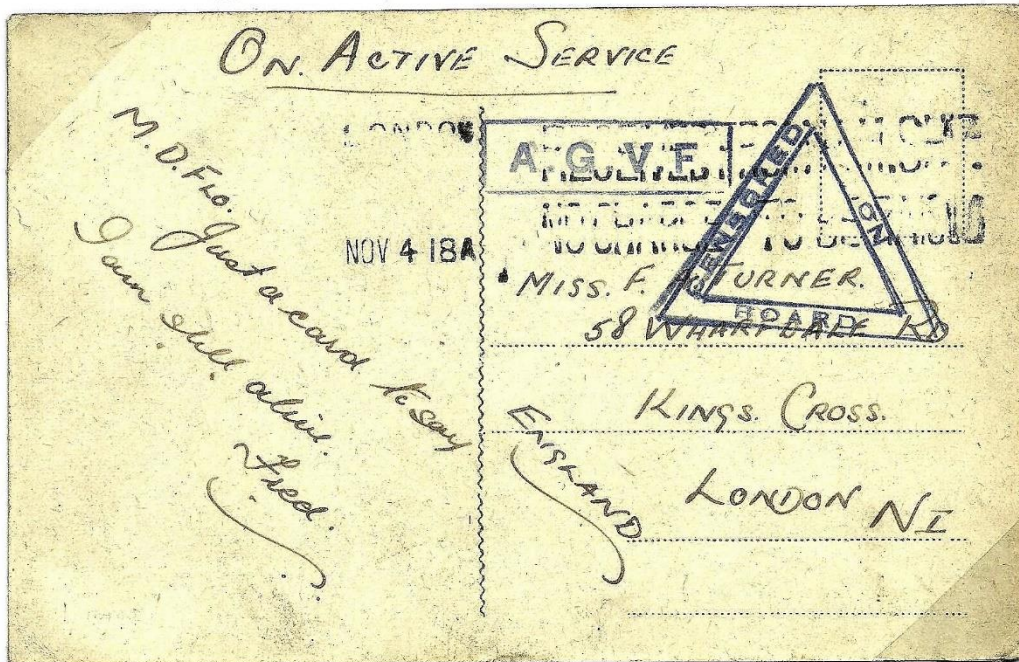 ON. ACTIVE SERVICE
M. D. FLO. Just a card to say
I am still alive.
Fred.
LONDON
NOV 4 18A
A.G.V.F.
CENSORED
BOARD
NO CHARGE TO BE RAISED
MISS. F. TURNER.
58 WHARFDALE RD
KINGS. CROSS.
LONDON N1
ENGLAND